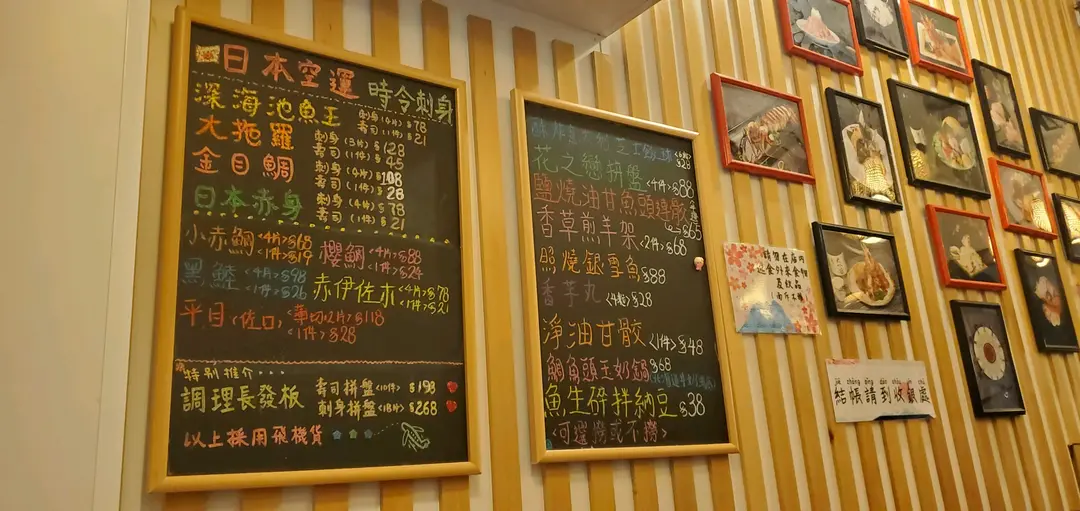 日本空運 時令刺身
深海池魚王 刺身(4片)$78
壽司(1件)$21
大拖羅 刺身(3片)$128
壽司(1件)$45
金目鯛 刺身(4片)$108
壽司(1件)$28
日本赤身 刺身(4片)$78
壽司(1件)$21
小赤鯛<4片>$68 <1件>$19
櫻鯛<4片>$88 <1件>$24
黑鯥<4片>$98 <1件>$26
赤伊佐木<4片>$78 <1件>$21
平目(佐口)<薄切12片>$118 <1件>$28
特别推介...
調理長發板 壽司拼盤<10件>$198
刺身拼盤<18片>$268
以上採用飛機貨
$28
花之戀拼盤<4件>$88
鹽燒油甘魚頭 $65
香草煎羊架<2件>$68
照燒銀雪魚$88
香芋丸<4粒>$28
淨油甘骹<1件>$48
鯛魚頭豆奶鍋$68
魚生碎拌納豆$38
<可選撈或不撈>
請勿在店內
進食外來食物
及飲品
jié zhàng qǐng dào shōu yín chù
結帳請到收銀處